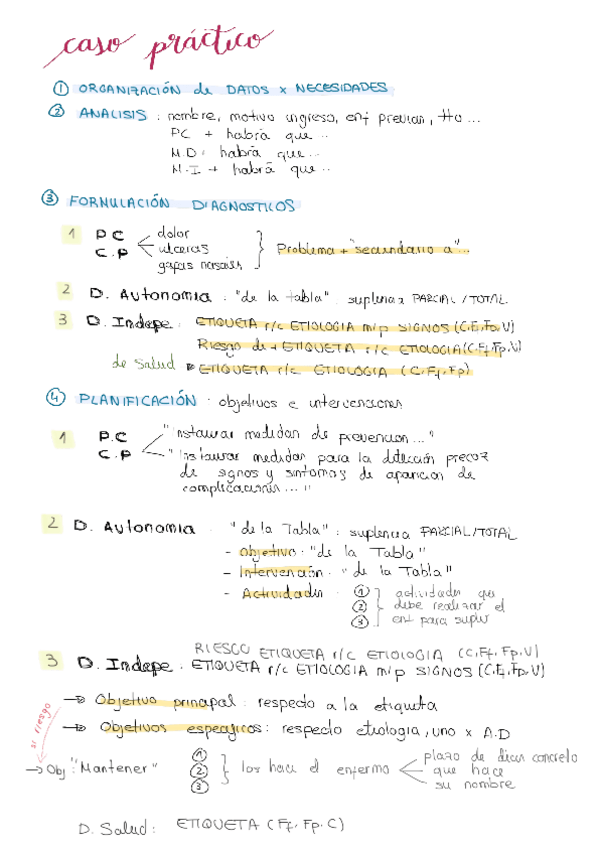 caso práctico
① ORGANIZACIÓN de DATOS x NECESIDADES
② ANALISIS : nombre, motivo ingreso, enf previas, tto...
P.C + habrá que ..
M.D. habrá que...
M.I. + habrá que ..
③ FORMULACIÓN DIAGNOSTICOS
1 P C dolor
C.P ulceras
gafas nasales
Problema + "secundario a"...
2 D. Autonomia : "de la tabla". suplencia PARCIAL/TOTAL
3 D. Indepe. ETIQUETA r/c ETIOLOGIA m/p SIGNOS (C,Ef,Fp,V)
Riesgo de + ETIQUETA r/c ETIOLOGIA (C,Ff,Fp,V)
de Salud ETIQUETA r/c ETIOLOGIA (C,Ff,Fp)
④ PLANIFICACIÓN · objetivos e intervenciones
1 P.C "instaurar medidas de prevencion..."
C.P "Instaurar medidas para la detección precoz
de signos y sintomas de aparicion de
complicaciones ..."
2 D. Autonomia . "de la Tabla" : suplencia PARCIAL/TOTAL
- Objetivo · "de la Tabla"
- Intervención · "de la Tabla"
- Actividades · ① actividades que
② debe realizar el
③ enf para suplir
RIESGO ETIQUETA r/c ETIOLOGIA (C,Ff,Fp,V)
3 D. Indepe . ETIQUETA r/c ETIOLOGIA m/p SIGNOS (C,Ef,Fp,V)
→ Objetivo principal : respecto a la etiqueta
→ Objetivos especificos: respecto etiologia, uno x A.D
si riesgo
→ Obj : "Mantener" ① ② ③ los hace el enfermo
plazo de dias concreto
que hace
su nombre
D. Salud : ETIQUETA (Ff, Fp, C)